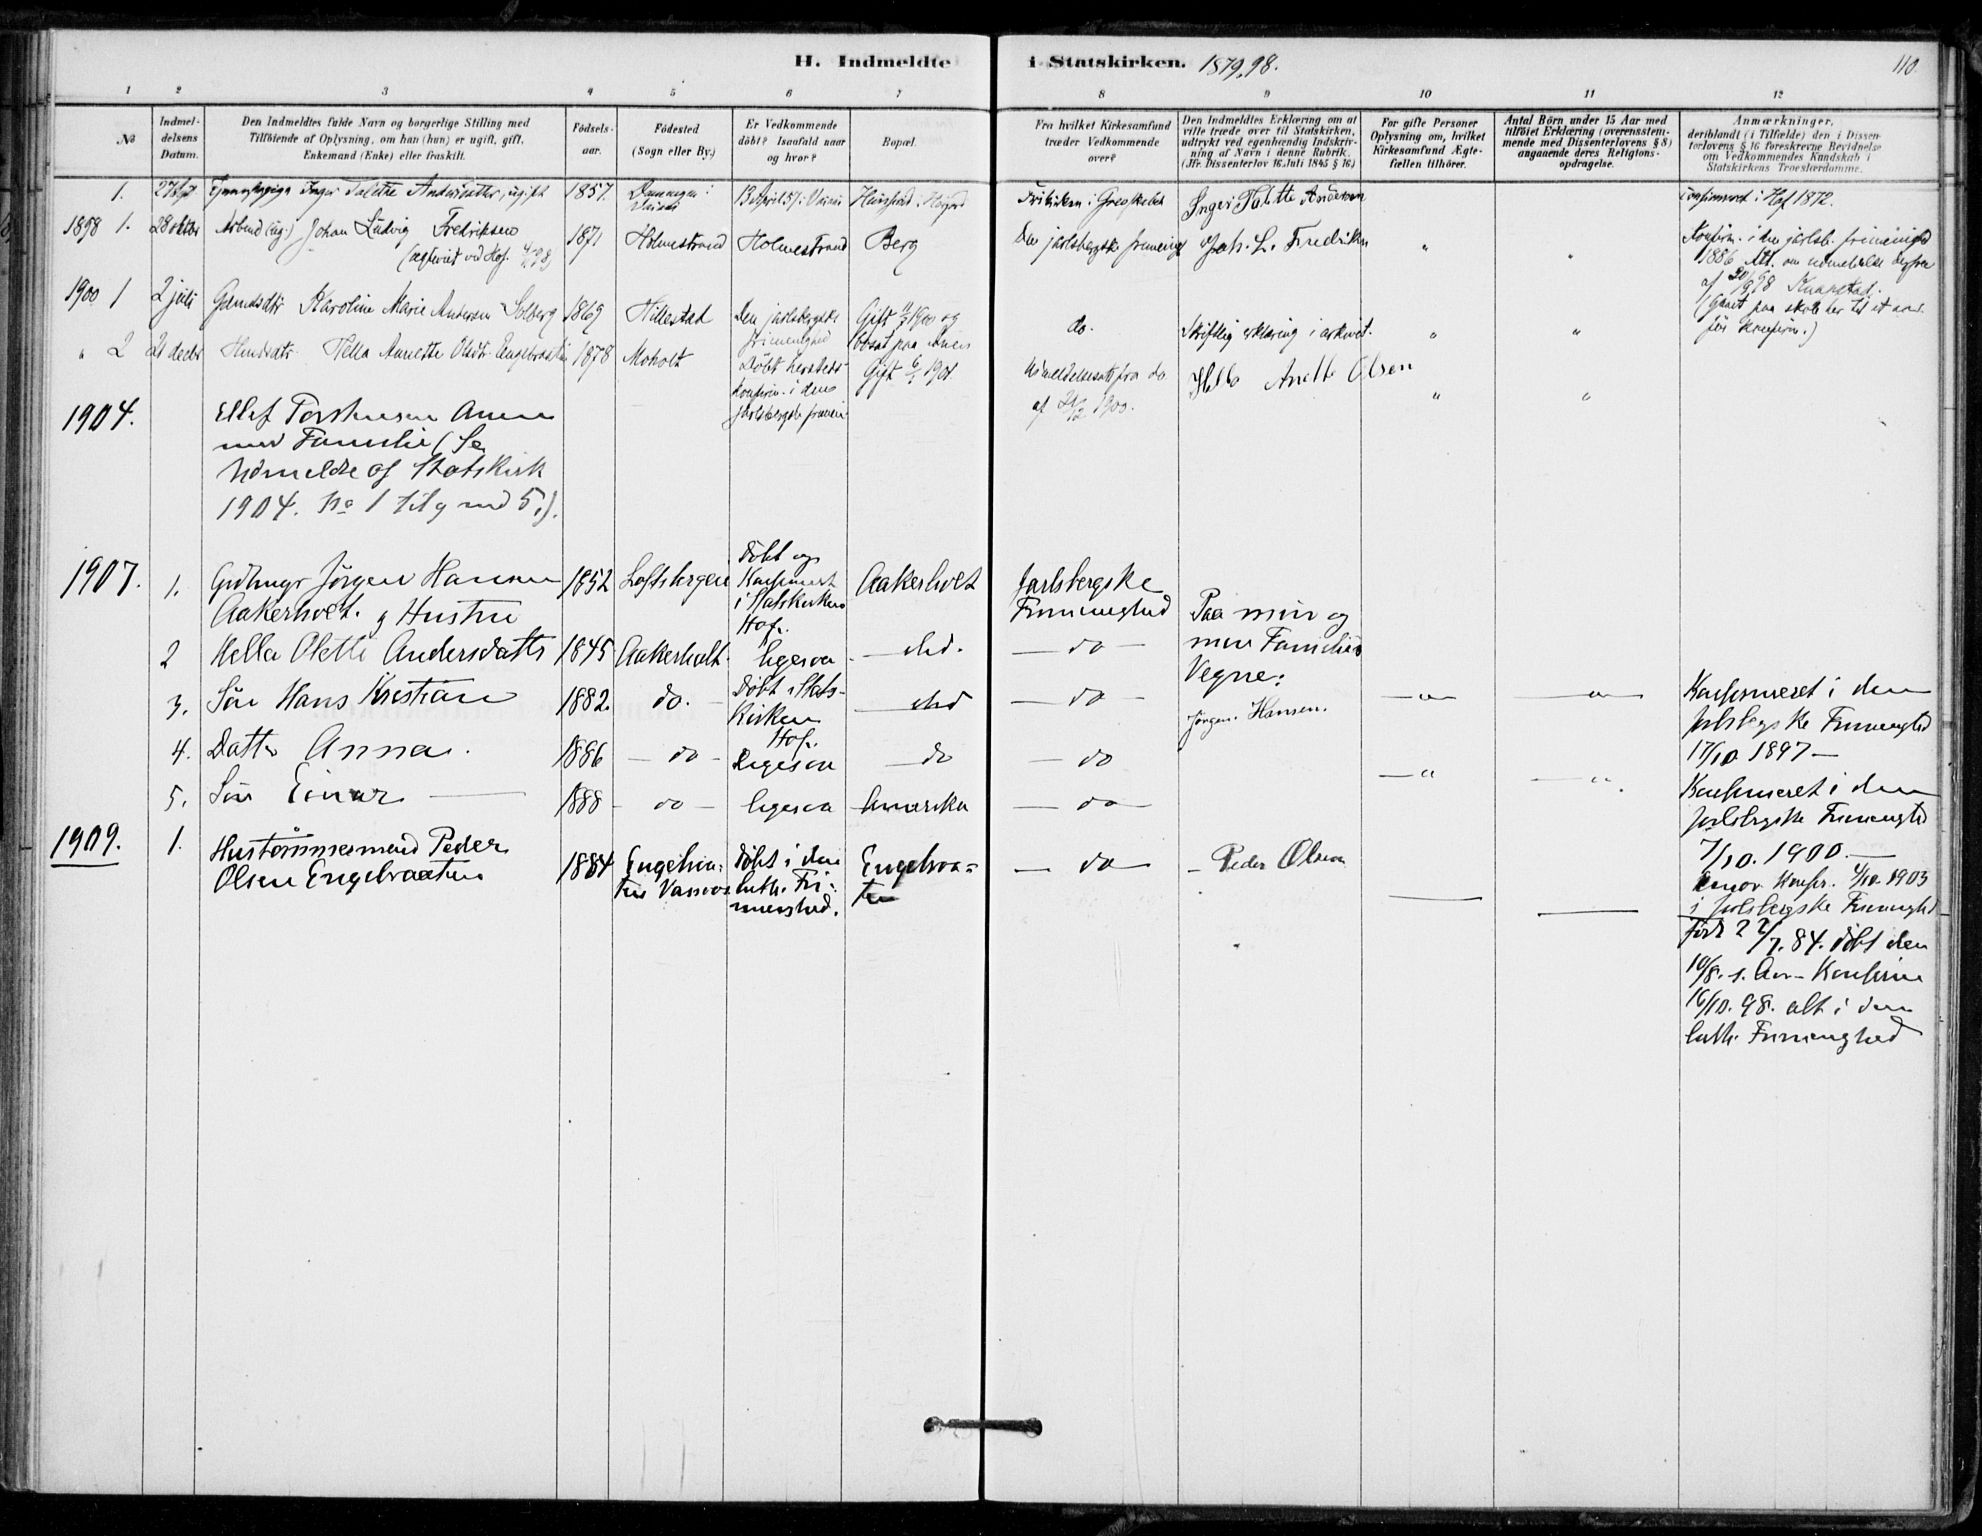 H. Indmeldte i Statskirken. 1879.98.
110.
1 2 3 4 5 6 7 8 9 10 11 12
No
Indmel-
delsens
Datum.
Den Indmeldtes fulde Navn og borgerlige Stilling med
Tilföiende af Oplysning, om han (hun) er ugift, gift,
Enkemand (Enke) eller fraskilt.
Födsels-
aar.
Födested
(Sogn eller By.)
Er Vedkommende
döbt? Isaafald naar
og hvor?
Bopæl.
Fra hvilket Kirkesamfund
træder Vedkommende
over?
Den Indmeldtes Erklæring om at
ville træde over til Statskirken,
udtrykt ved egenhændig Indskriv-
ning af Navn i denne Rubrik.
(Jfr. Dissenterlov 16. Juli 1845 § 16.)
For gifte Personer
Oplysning om, hvilket
Kirkesamfund Ægte-
fællen tilhörer.
Antal Börn under 15 Aar med
tilföiet Erklæring (overensstem-
mende med Dissenterlovens § 8)
angaaende deres Religions-
opdragelse.
Anmærkninger,
deriblandt (i Tilfælde) den i Dissen-
terlovens § 16 foreskrevne Bevidnelse
om Vedkommendes Kundskab i
Statskirkens Troeslærdomme.
1. 27 Inger Talette Andersdatter, ugift 1857. 13 April 57 i Frikirken i Grevskabet Inger Talette Andersen
Konfirmeret i Hof 1872.
1898 1. 28 oktbr Arbmd (ug.) Johan Ludvig Fredriksen
1871 Holmestrand Holmestrand Berg
Den jarlsbergske frimenigh Joh. L. Fredriksen " "
Konfirm. i den jarlsb. frimenighed
1886 Att. om
af 20/9 98
(Gaaet paa skole her til et aar
för konfirm.)
1900 1 2 juli Gaardsdtr Karoline Marie Andersen Solberg 1869 Hillestad
Den jarlsbergske
frimenighed
Gift 1900 og
bosat paa
do. Skriftlig erklæring i arkivet. " "
" 2 21 decbr Hella Anette Olsdtr. Engebraaten 1878 Moholt
Döbt hersteds
konfirm. i den
jarlsbergske frimeni.
Gift 6/1 1901
Udmeldelsesatt fra do
af 21/12 1900.
Hella Anette Olsen " "
1904.
Ellef Torstensen
med Familie (Se
Udmeldte af Statskirk
1904. No 1 til og med 5.).
1907.
1. Grdbrugr Jörgen Hansen
Aakerholt. og Hustru
1852 Loftsbergeie
Döbt og
Konfirmert
i Statskirken
Hof.
Aakerholt
Jarlsbergske
Frimenighed
Paa min og
min Familiers
Vegne:
Jörgen. Hansen.
2 Hella Olette Andersdatter 1845 Aakerholt. ligesaa — do. — do —
3. Sön Hans Kristian 1882. do.
Döbt i Stats-
kirken
Hof.
— do — do — — " — — " —
Konfirmeret i den
jarlsbergske Frimenighed
17/10 1897 —
4. Datter Anna. 1886 — do — Ligesaa — do — do — " — "
Konfirmeret i den
Jarlsbergske Frimenighed
7/10. 1900. —
5. Sön Einar — 1888 — do — ligesaa Amerika — do —
Einar Konfir. 4/10. 1903
i Jarlsbergske Frimenighed
1909.
1. Hustömmermand Peder
Olsen Engebraaten
1884
Engebraa-
ten Vassaas
Döbt i den
luth. Fri-
menighed.
Engebraa-
ten
— do — — Peder Olsen
Född 22/7. 84. döbt den
10/8. s. Aar — Konfirm
16/10. 98. alt i den
luth. Frimenighed